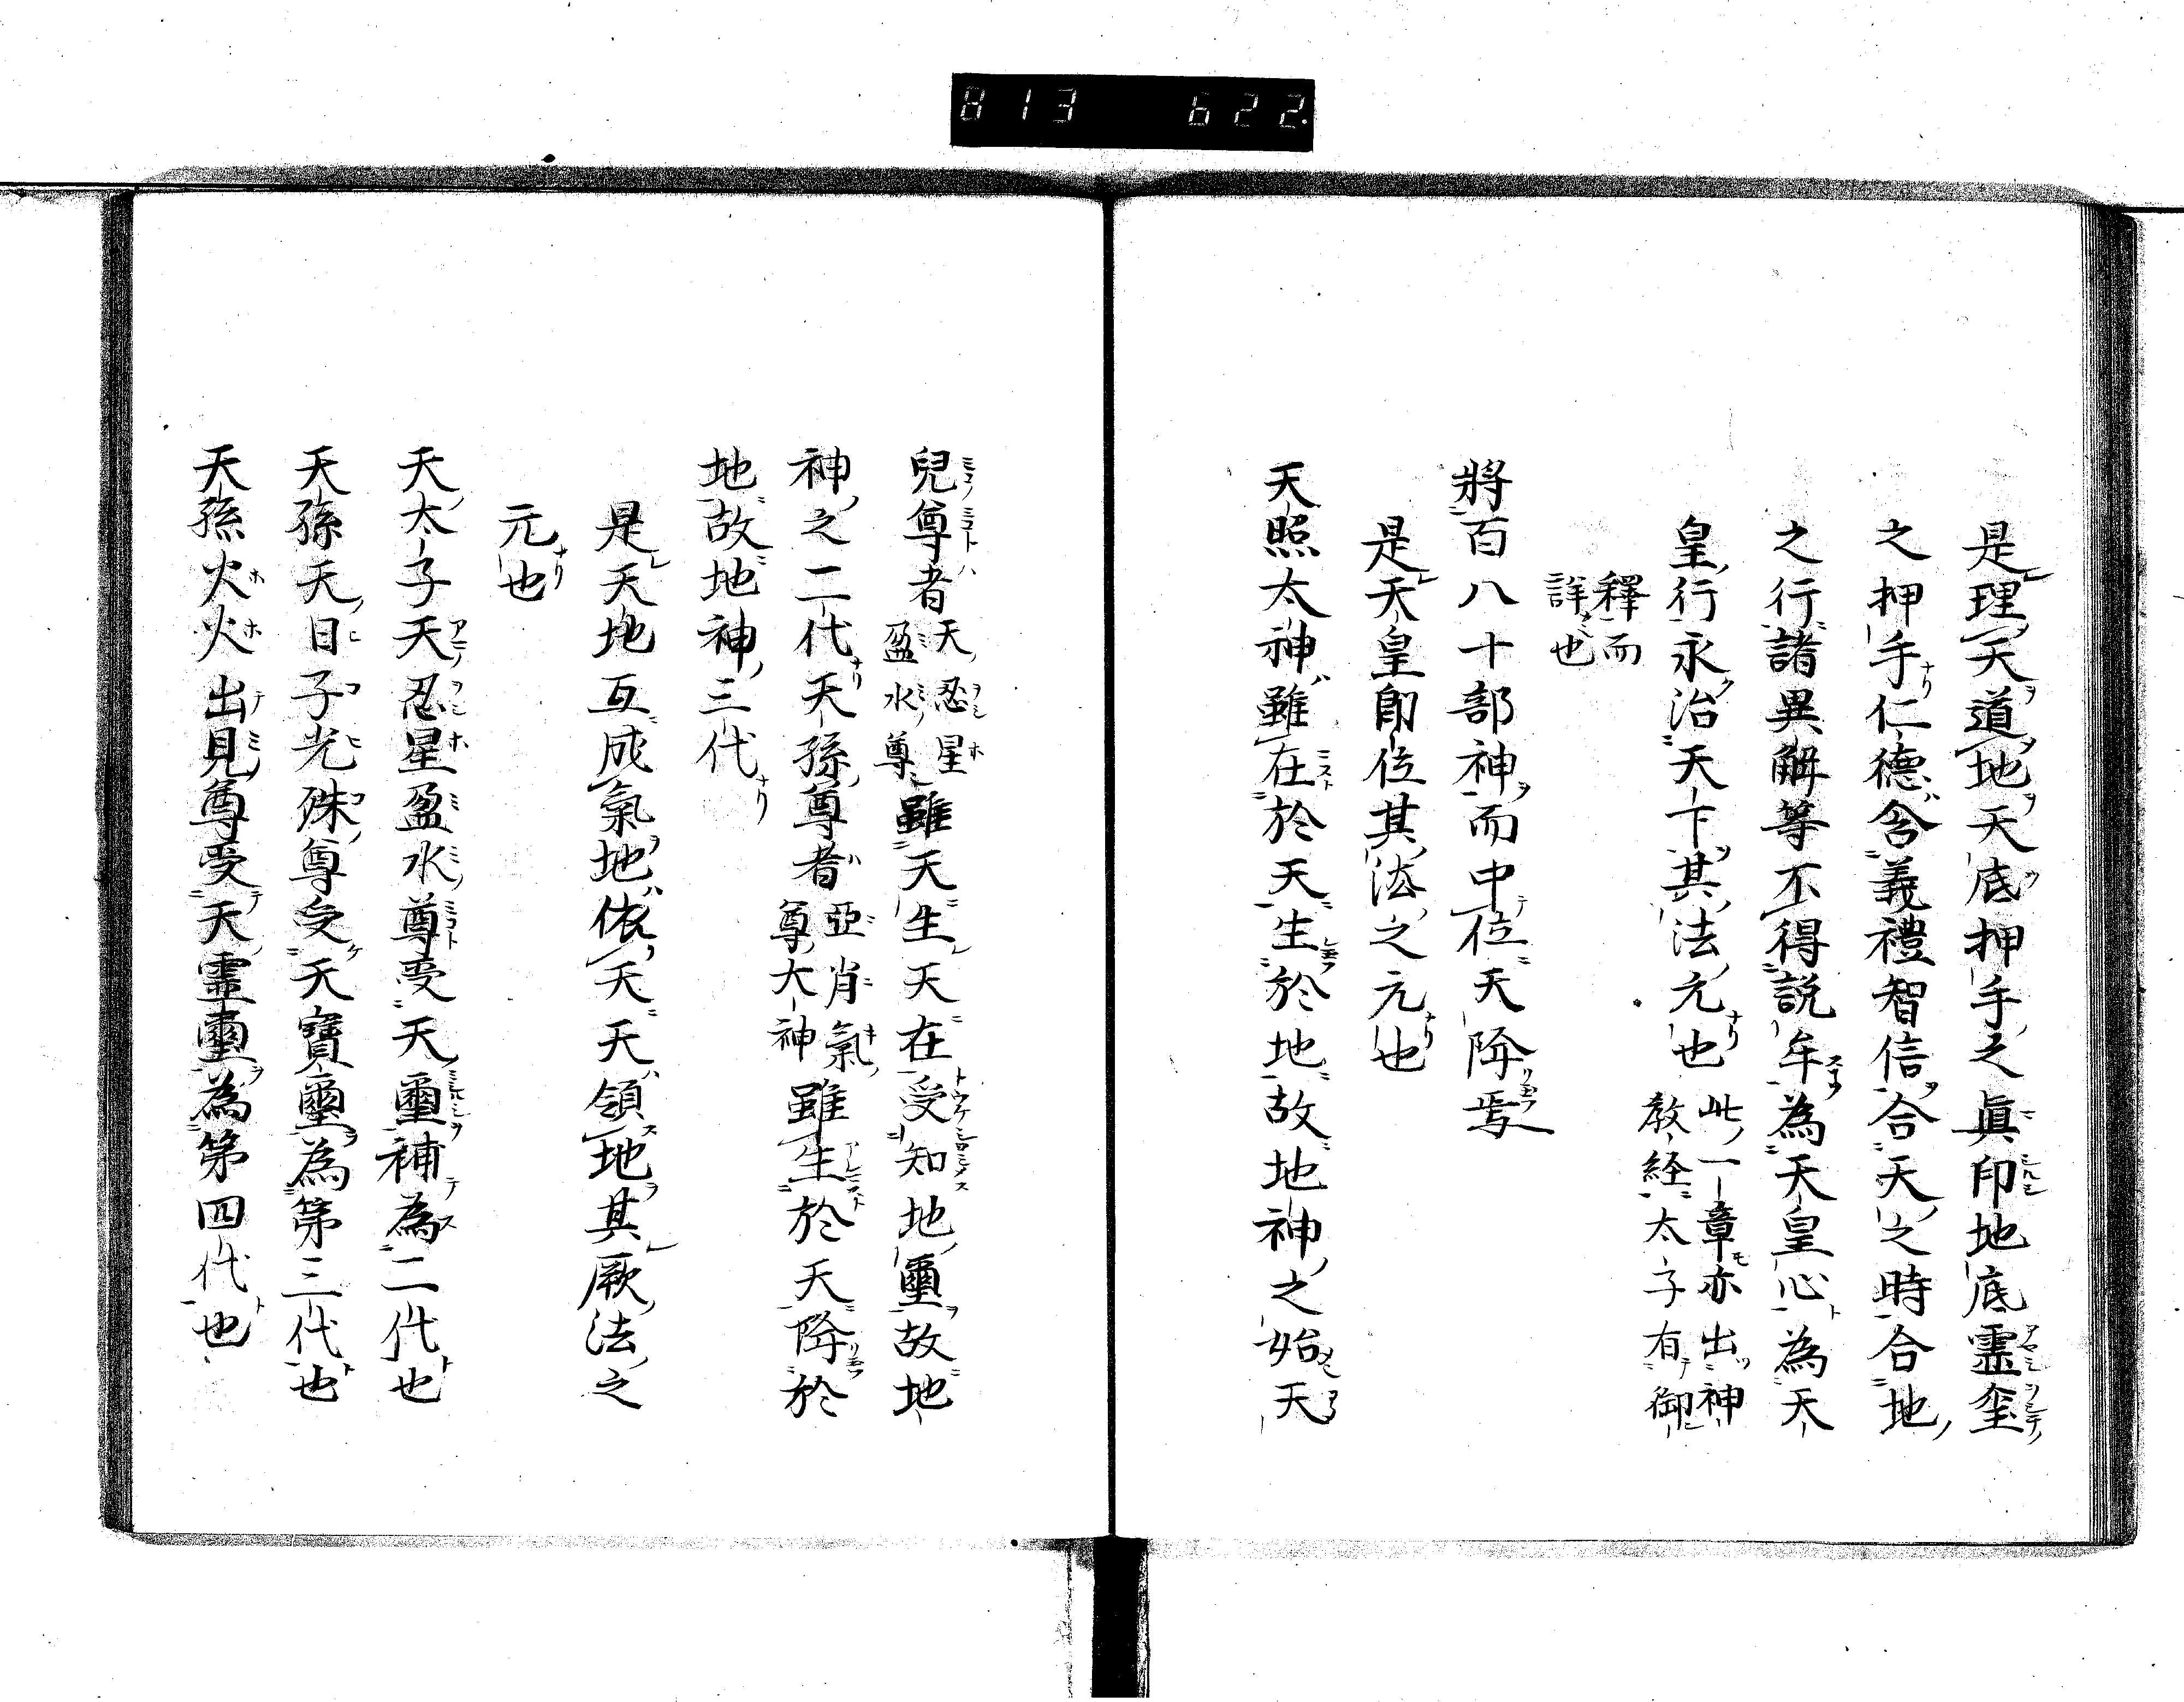 813 622.
是理天道地天底押手之眞印地底靈璽
之押手仁德含義禮智信合天之時合地
之行諸異解等不得説牟為天皇心為天
皇行永治天下其法元也 此一章亦出神
教経太子有御
釋而
詳也
將百八十部神而中位天降焉
是天皇即位其法之元也
天照太神雖在於天生於地故地神之始天
兒尊者 天忍星
盈水尊
雖天生天在受知地璽故地
神之二代天孫尊者 亞肖氣
尊大神
雖生於天降於
地故地神三代
是天地互成氣地依天天領地其厥法之
元也
天太子天忍星盈水尊受天璽補為二代也
天孫天日子光殊尊受天寶璽為第三代也
天孫火火出見尊受天靈璽為第四代也